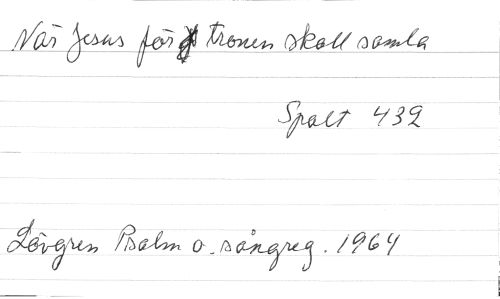 När Jesus för tronen skall samla
Spalt 432
Lövgren Psalm o. sångreg. 1964